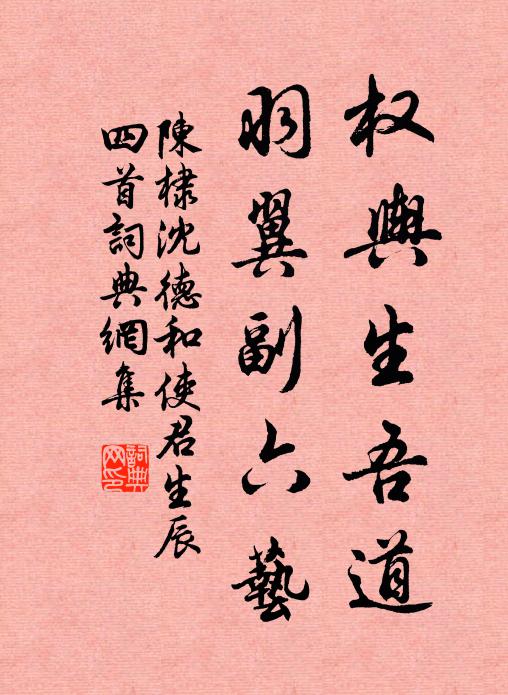 权舆生吾道
羽翼副六藝
陳棣沈德和使君生辰
四首詞典網集
詞典网印